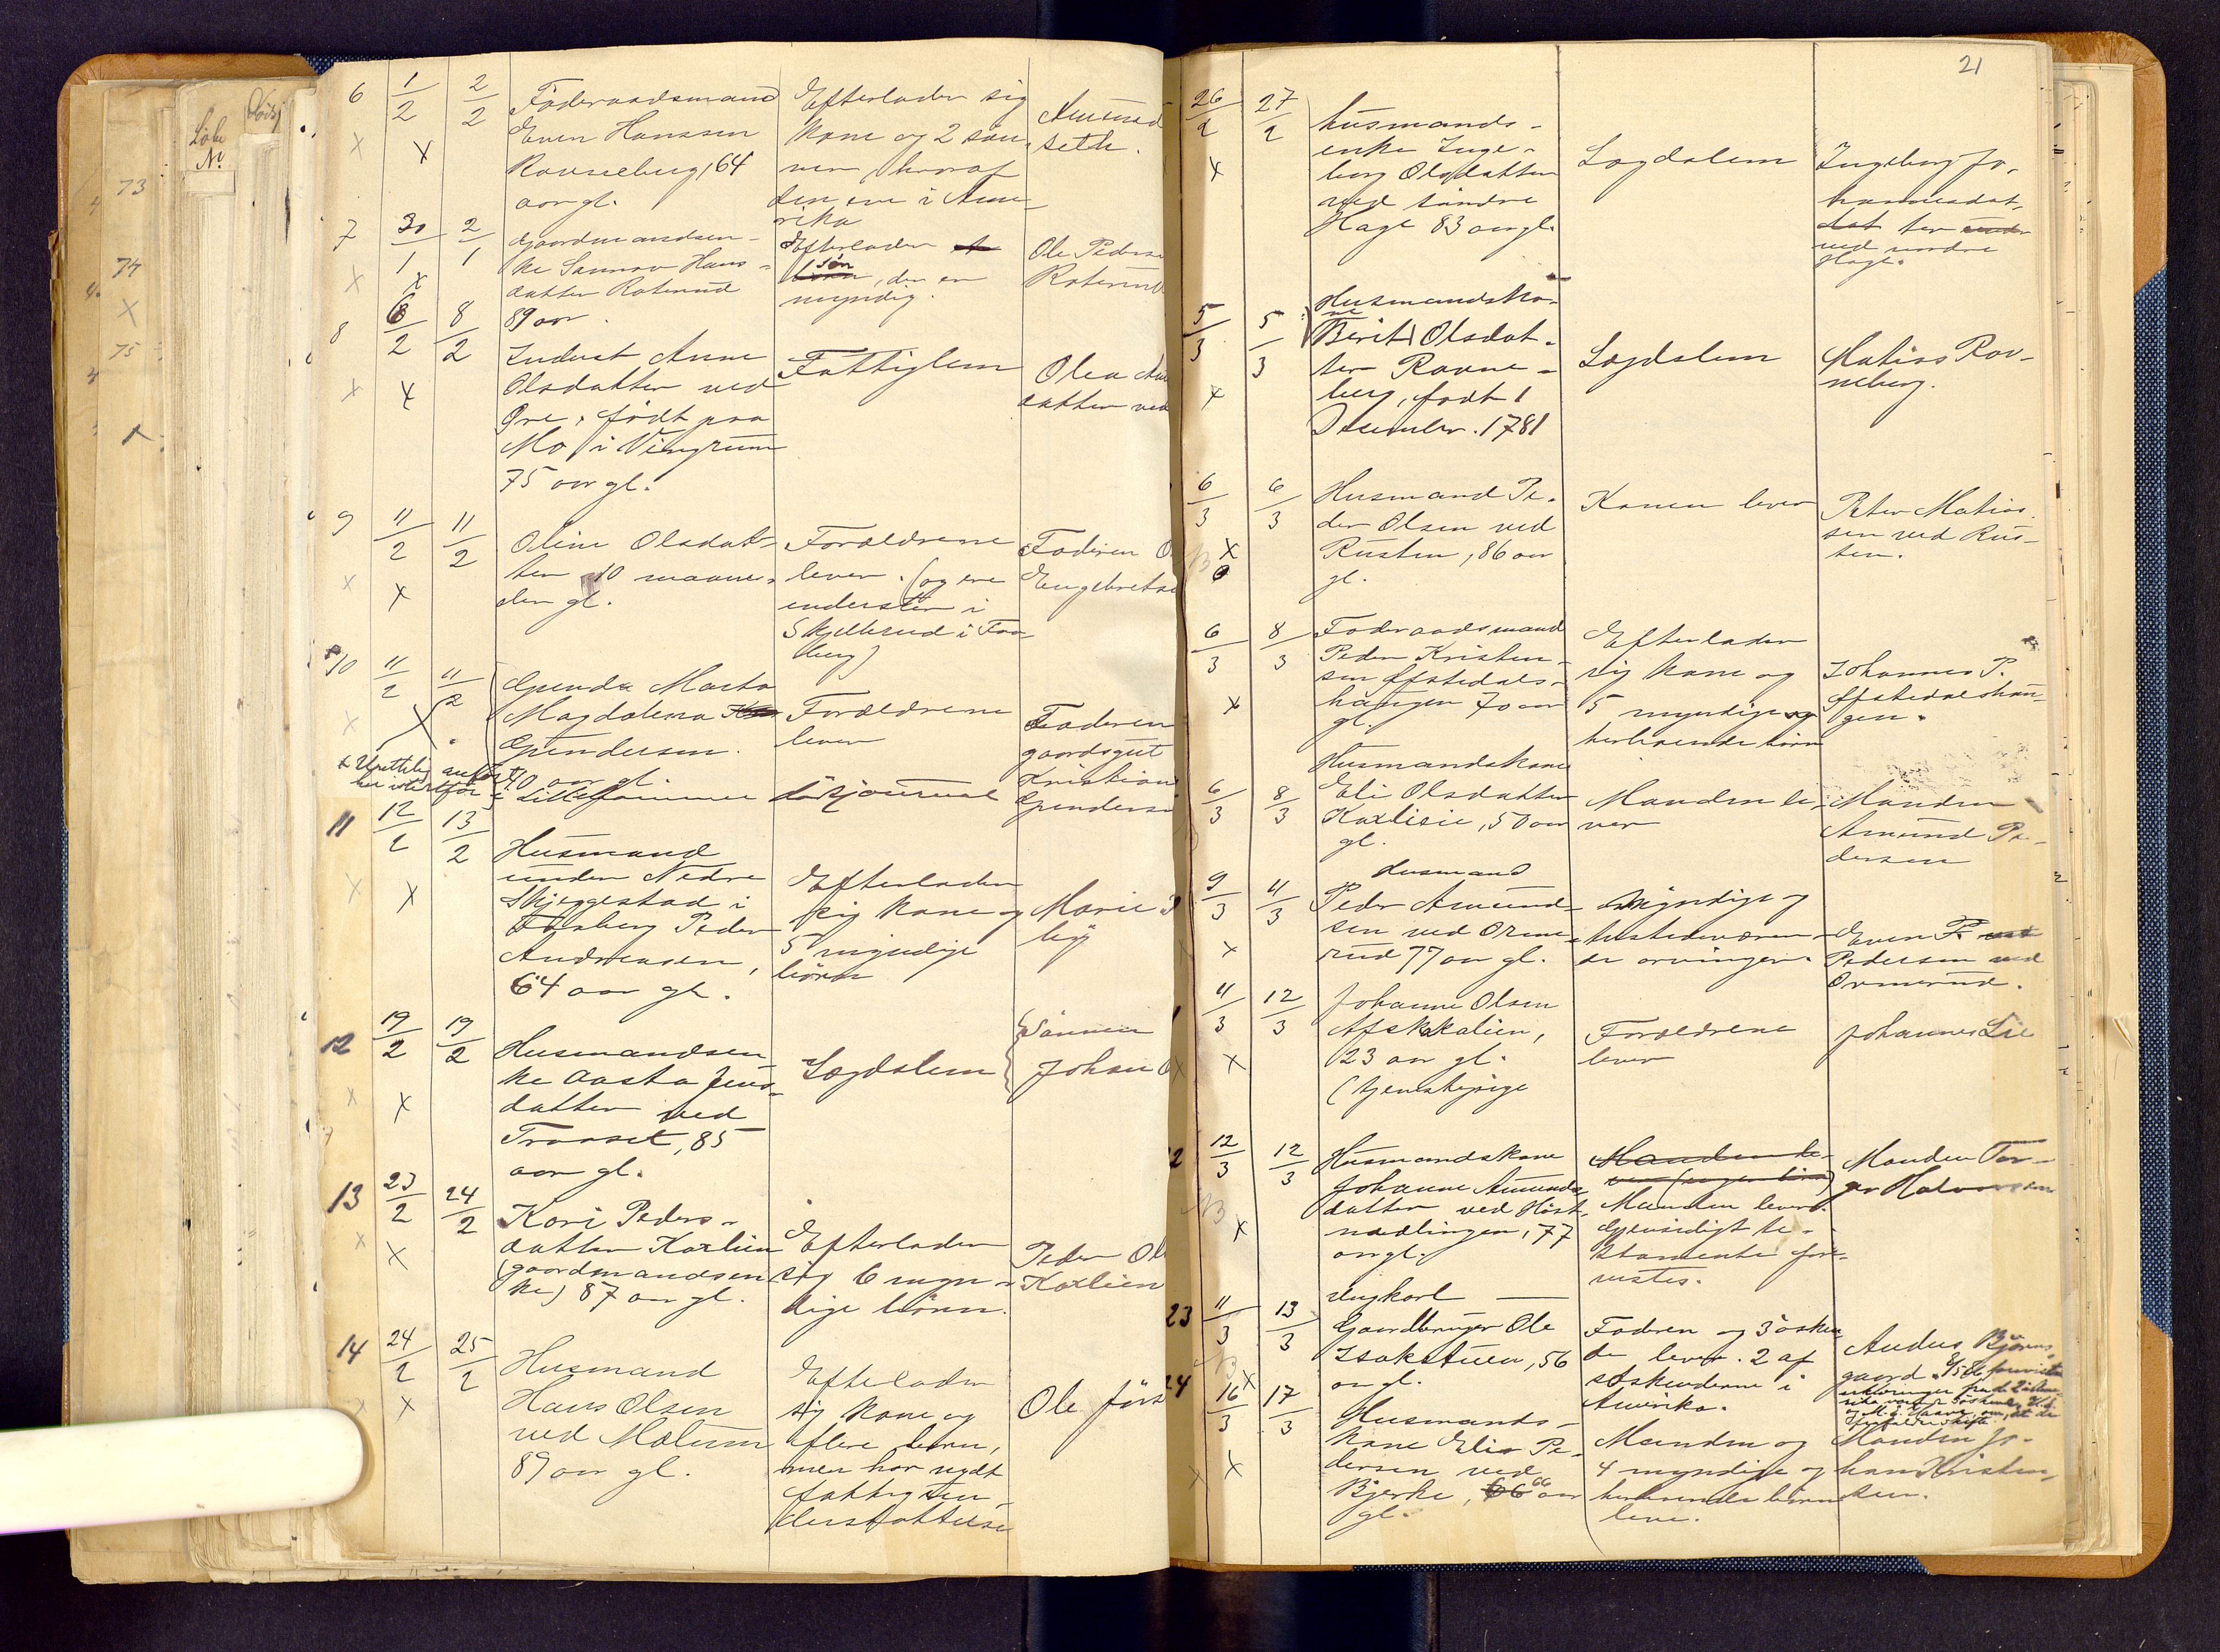 Löbe
No.
73
74
75
6
1/2
2/2
Föderaadsmand
Even Hanssen
Rovneberg, 64
aar gl.
Efterlader sig
kone og 2 søn-
ner, hvoraf
den ene i Ame-
rika
Amund
seth.
7
30/1
2/1
Gaardmandsen-
ke Hans-
datter Roterud
89 aar.
Efterlader
søn, der er
myndig.
Ole Peders
Roterud
8
6/2
8/2
Inderst Anne
Olsdatter ved
Øre, födt paa
Mo i Vingrum
75 aar gl.
Fattiglem
Olea
datter ved
9
11/2
11/2
Oline Olsdat-
ter 10 maane-
der gl.
Forældrene
lever. (og ere
inderster i
Skjellerud i Faa-
berg)
Faderen O
Engebretse
10
11/2
11/2
Gunda Marta
Magdalena
Gundersen.
0 aar gl.
Forældrene
lever
Faderen
gaardsgut
Kristian
Gunderse
x Urettelig anført
her istedtfor i Lillehammer dösjournal
11
12/2
13/2
Husmand
under Nedre
Skjeggestad i
Faaberg Peder
Andreasen,
64 aar gl.
Efterlader
sig kone og
5 myndige
börn
Marie
12
19/2
19/2
Husmandsen
ke Aasta Jens-
datter ved
Traaset, 85
aar gl.
Lægdslem
Sönnen
Johan O
13
23/2
24/2
Kari Peders-
datter Karlien
(gaardmandsen
ke) 87 aar gl.
Efterlader
sig 6 myn-
dige börn.
Peder Ol
Karlien
14
24/2
25/2
Husmand
Hans Olsen
ved Mælum
89 aar gl.
Efterlader
sig kone og
flere börn,
men har nydt
fattigun-
derstøttelse
Ole
21
26/2
27/2
Husmands-
enke Inge-
borg Olsdatter
ved söndre
Hage 83 aar gl.
Lægdslem
Ingeborg Jo-
hannesdat-
ter
ved nordre
Hage.
5/3
5/3
Husmandsko-
ne
Berit Olsdat-
ter Rovne-
berg, födt 1
Desember. 1781
Lægdslem
Matias Rov-
neberg.
6/3
6/3
Husmand Pe-
der Olsen ved
Rusten, 86 aar
gl.
Konen lever
Peter Matias-
sen ved Rus-
ten.
6/3
8/3
Foderaadsmand
Peder Kristen-
sen Afstedals-
haugen 70 aar
gl.
Efterlader
sig kone og
5 myndige og
herværende börn
Johannes P.
Afstedalshau-
gen.
6/3
8/3
Husmandskone
Eli Olsdatter
Karlisie, 50 aar
gl.
Manden le-
ver
Manden
Amund Pe-
dersen
9/3
11/3
Husmand
Peder Amund-
sen ved Orme-
rud 77 aar gl.
Myndige og
tilstedeværen-
de arvinger.
Even P
Pedersen ved
Ormerud.
11/3
12/3
Johanne Olsen
Afskakalien,
23 aar gl.
(tjenestepige
Forældrene
lever
Johannes Lie
12/3
12/3
Husmandskone
Johanne Amunds
datter ved Höst-
mælingen, 77
aar gl.
Manden le-
ver (ingen börn)
Manden lever.
Gjensidigt te-
stamente fore-
vistes.
Manden Tor-
ger Halvorsen
23
11/3
13/3
Ungkarl
Gaardbruger Ole
Isakstuen, 56
aar gl.
Fadren og 3 ösken
de lever. 2 af
söskenderne i
Amerika.
Anders Björns-
gaard.
24
16/3
17/3
Husmands-
kone Elia Pe-
dersen ved
Bjerke, 66 aar
gl.
Manden og
4 myndige og
herværende börn
leve.
Manden Jo-
han Kristen-
sen.